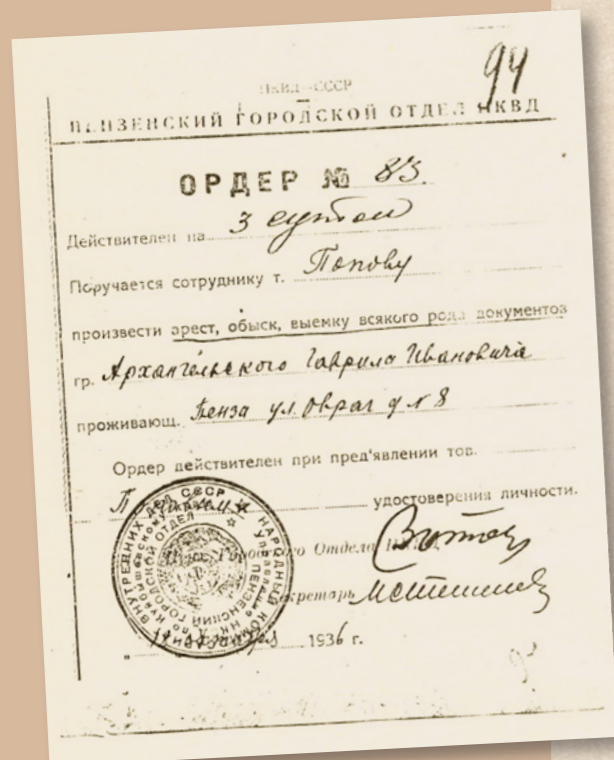 94
НКВД—СССР
ПЕНЗЕНСКИЙ ГОРОДСКОЙ ОТДЕЛ НКВД
ОРДЕР № 83.
Действителен на 3 суток
Поручается сотруднику т. Попову
произвести арест, обыск, выемку всякого рода документов
гр. Архангельского Гаврила Ивановича
проживающ. Пенза ул. Овраг д № 8
Ордер действителен при пред'явлении тов.
удостоверения личности.
Городского Отдела НКВД
Секретарь
1936 г.
НАРОДНЫЙ ВНУТРЕННИХ ДЕЛ СССР
ПЕНЗЕНСКИЙ ГОРОДСКОЙ ОТДЕЛ